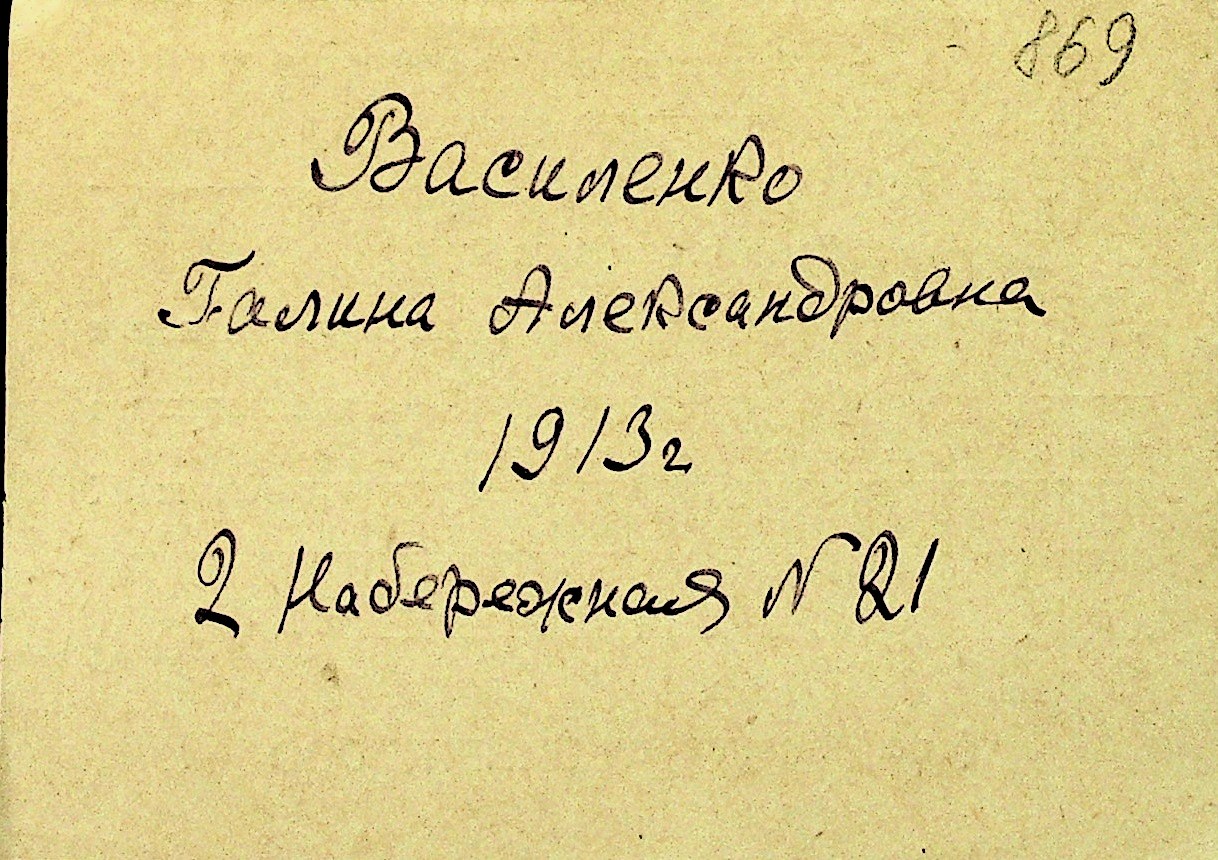 869
Василенко
Галина Александровна
1913г
2 Набережная N 21